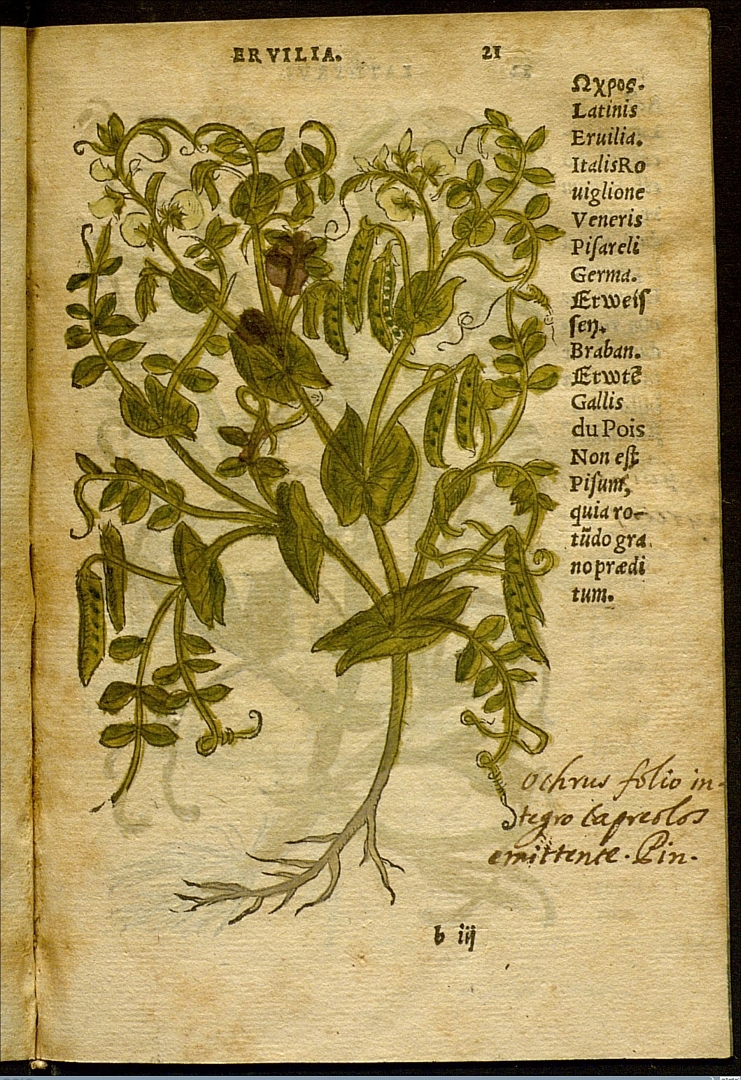 ERVILIA. 21
Ωχρος.
Latinis
Eruilia.
ItalisRo
uiglione
Veneris
Piſareli
Germa.
Erweiſ
ſen.
Braban.
Erwtē
Gallis
du Pois
Non eſt
Piſum,
quia ro-
tūdo gra
no prædi
tum.
Ochrus folio in-
tegro capreolos
emittente. Pin.
b iij